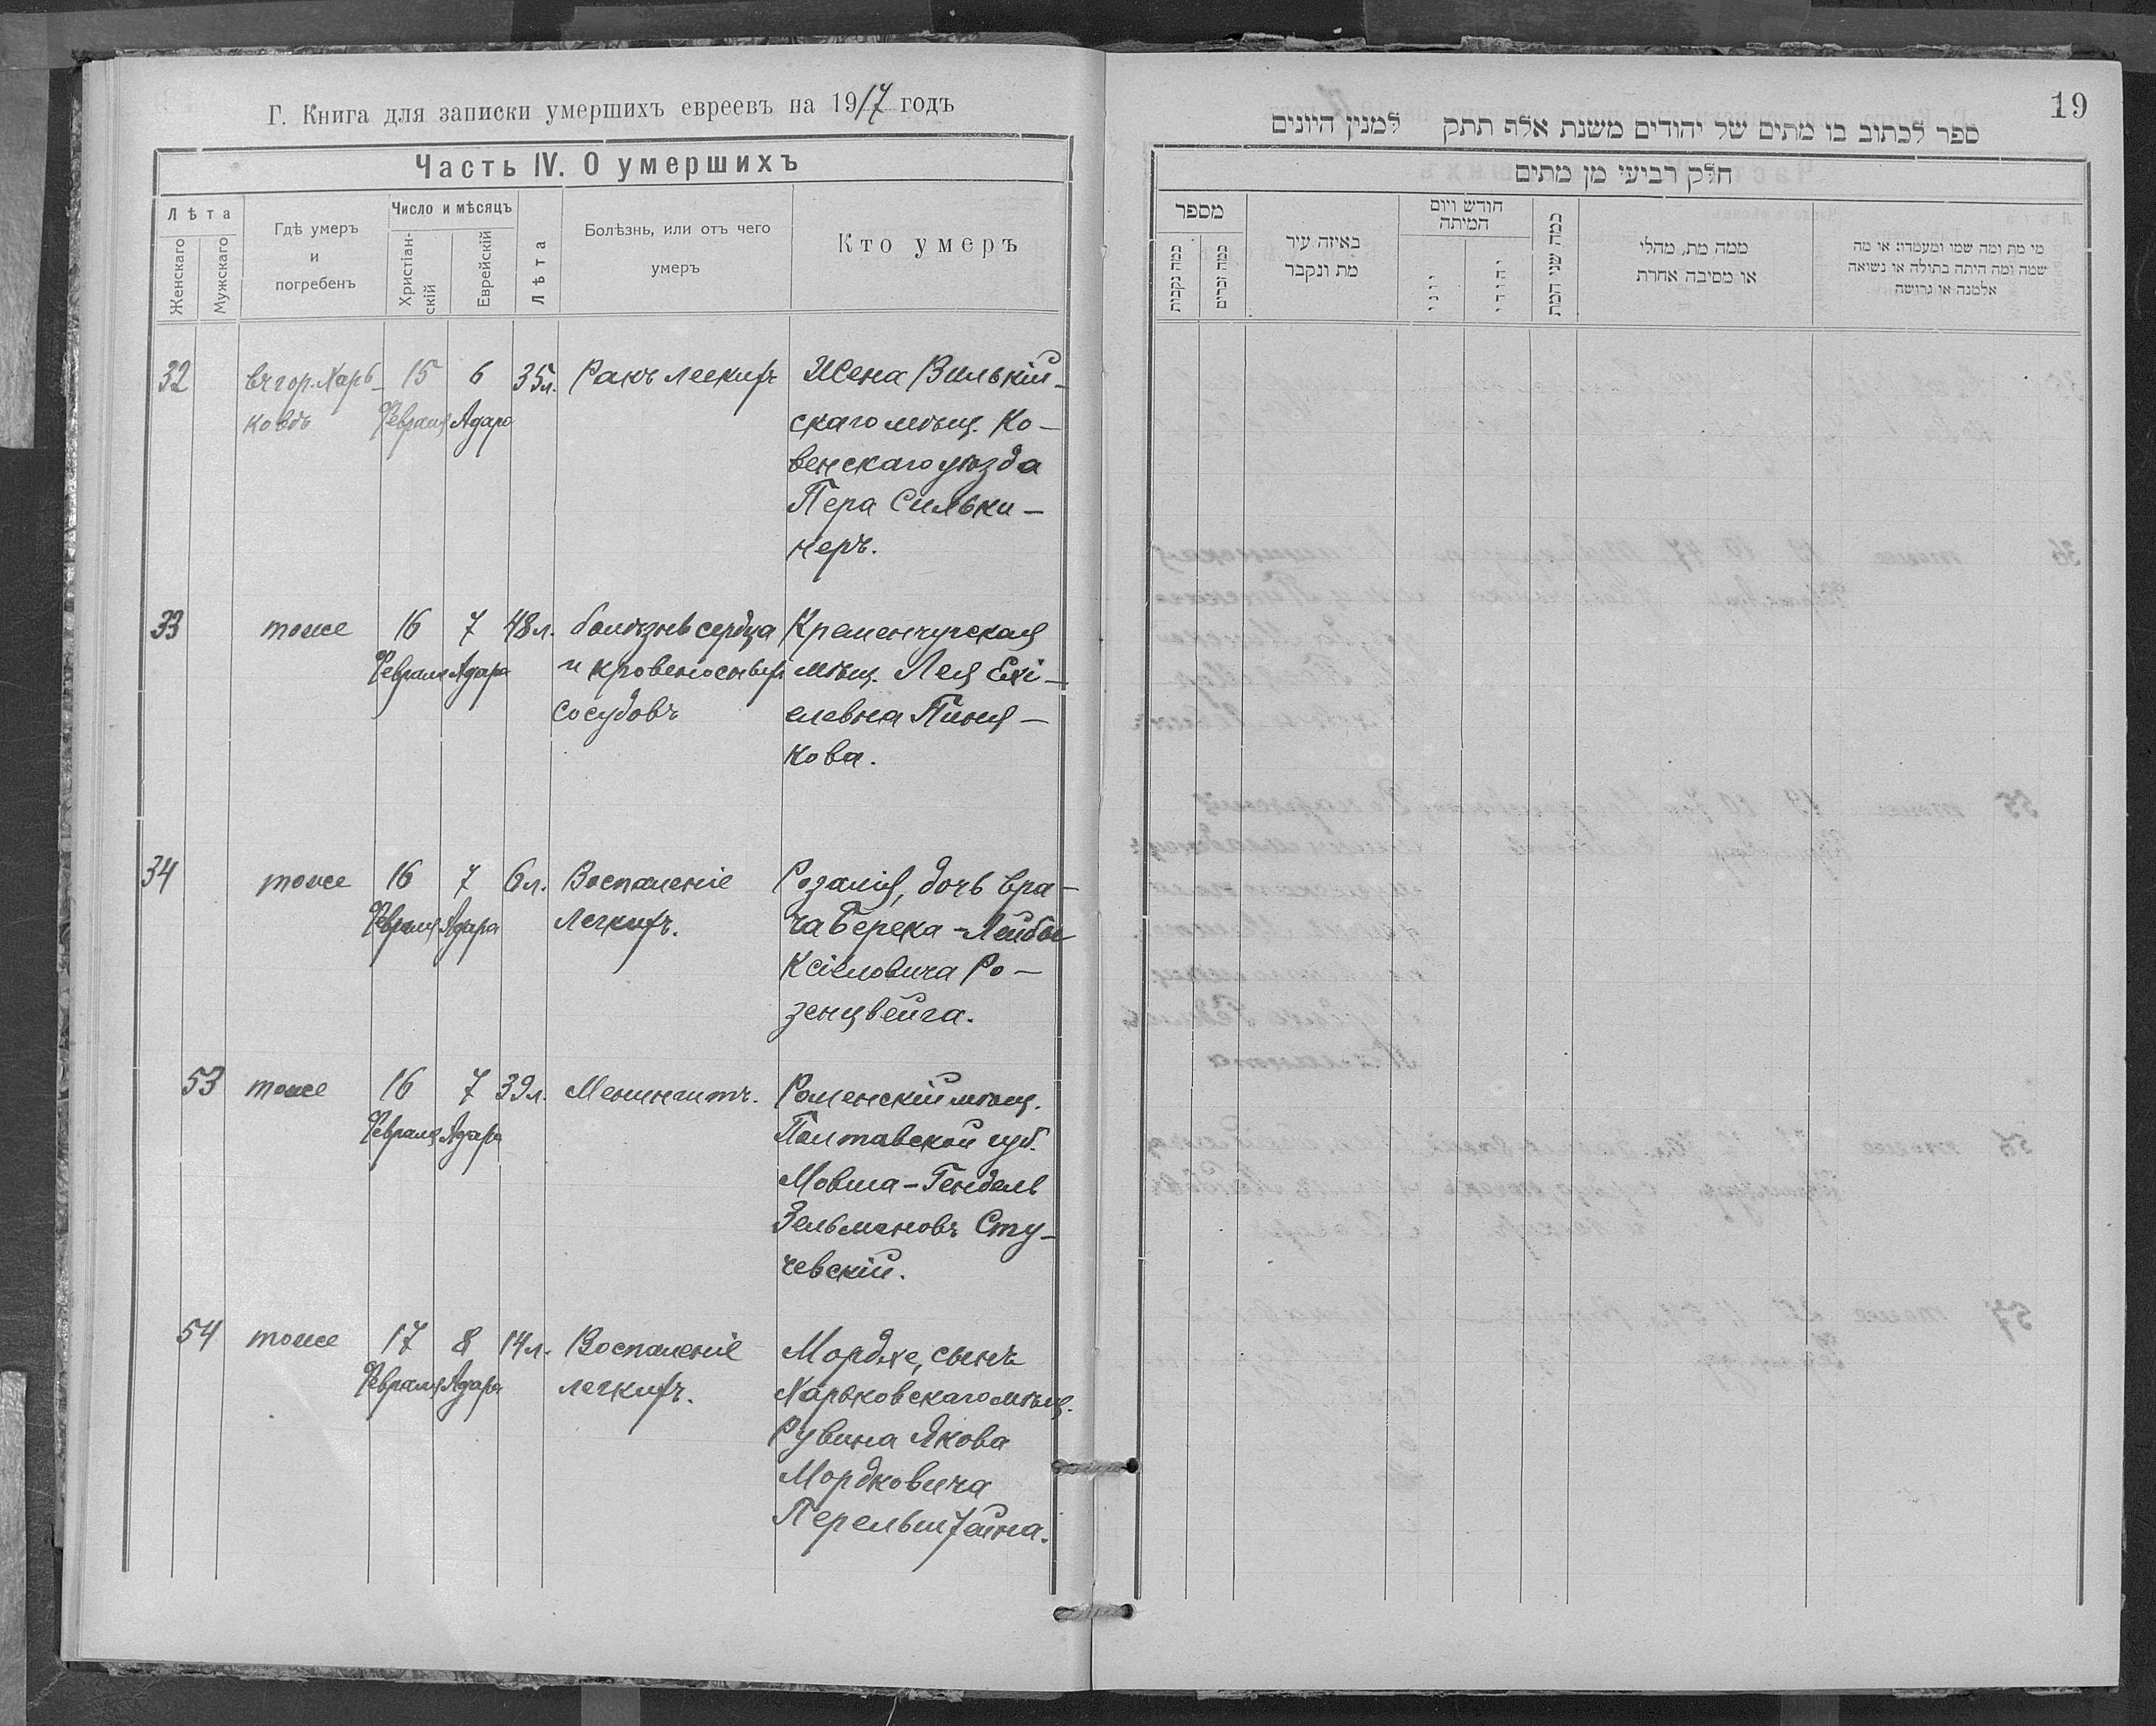 Г. Книга для записки умершихъ евреевъ на 1917 годъ
Часть IV. О умершихъ
Лѣта
Женскаго
Мужскаго
Гдѣ умеръ
и
погребенъ
Число и мѣсяцъ
Христіан-
скій
Еврейскій
Лѣта
Болѣзнь, или отъ чего
умеръ
Кто умеръ
32 въ гор. Харь- 15 6 35л. Ракъ легкихъ Жена Вилькій-
ковѣ Февраля Адара скаго мѣщ. Ко-
венскаго уѣзда
Пера Сильки-
неръ.
33 тоже 16 7 48л. болѣзнь сердца Кременчугская
Февраля Адара и кровеносныхъ мѣщ. Лея Ехі-
сосудовъ елевна Пиня-
кова.
34 тоже 16 7 6л. Воспаленіе Розалія, дочь вра-
Февраля Адара легкихъ. ча Берека-Лейбы
Ксіеловича Ро-
зенцвейга.
53 тоже 16 7 39л. Менингитъ. Роменскій мѣщ.
Февраля Адара Полтавской губ.
Мовша-Гендель
Зельмановъ Сту-
чевскій.
54 тоже 17 8 14л. Воспаленіе Мордхе, сынъ
Февраля Адара легкихъ. Харьковскаго мѣщ.
Рувина Якова
Мордковича
Перельштейна.
19
ספר לכתוב בו מתים של יהודים משנת אלף תתק למנין היונים
חלק רביעי מן מתים
מספר
כמה נקבות
כמה זכרים
באיזה עיר
מת ונקבר
חודש ויום
המיתה
יוני
יהודי
כמה שני המת
ממה מת, מחלי
או מסיבה אחרת
מי מת ומה שמו ומעמדו: או מה
שמה ומה היתה בתולה או נשואה
אלמנה או גרושה